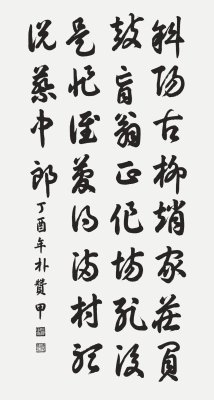 斜陽古柳趙家莊負
鼓盲翁正作場死後
是非誰管得滿村聽
説蔡中郎
丁酉年朴贊甲